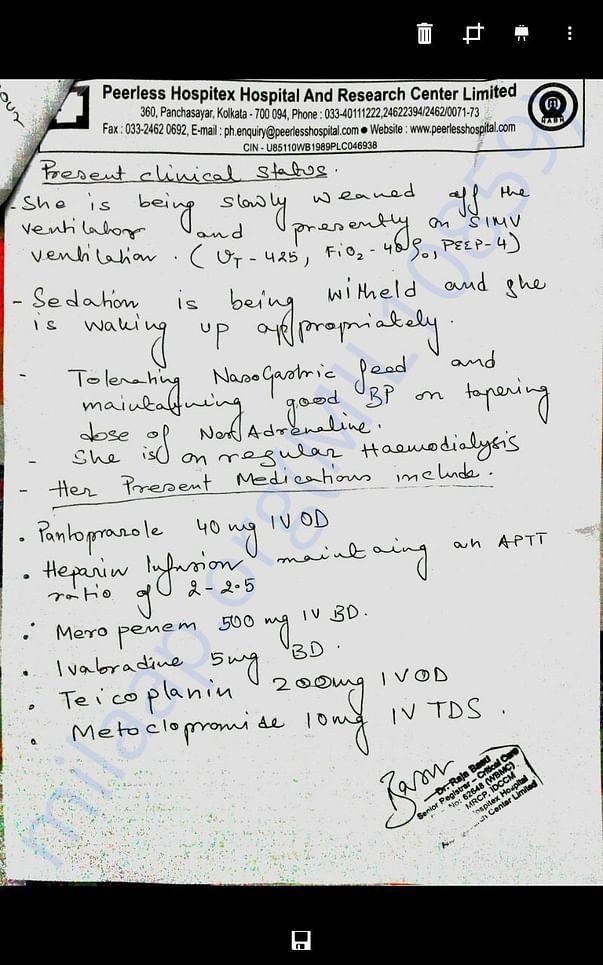 Peerless Hospitex Hospital And Research Center Limited
360, Panchasayar, Kolkata - 700 094, Phone : 033-40111222,24622394/2462/0071-73
Fax : 033-2462 0692, E-mail : ph.enquiry@peerlesshospital.com ● Website : www.peerlesshospital.com
CIN - U85110WB1989PLC046938
Present clinical status.
- She is being slowly weaned off the
ventilator and presently on SIMV
ventilation. (VT - 425, FiO2 - 40%, PEEP-4)
- Sedation is being witheld and she
is waking up appropriately.
- Tolerating NasoGastric feed and
maintaining good BP on tapering
dose of Nor Adrenaline.
- She is on regular Haemodialysis
- Her Present Medications include.
• Pantoprazole 40 mg IV OD
• Heparin Infusion maintaing an APTT
ratio of 2-2.5
• Meropenem 500 mg IV BD.
• Ivabradine 5mg BD.
• Teicoplanin 200mg IV OD
• Metoclopromide 10mg IV TDS.
Dr. Raja Basu
Senior Registrar - Critical Care
No: 62648 (WBMC)
MRCP, IDCCM
Hospitex Hospital
Center Limited
milaap.org